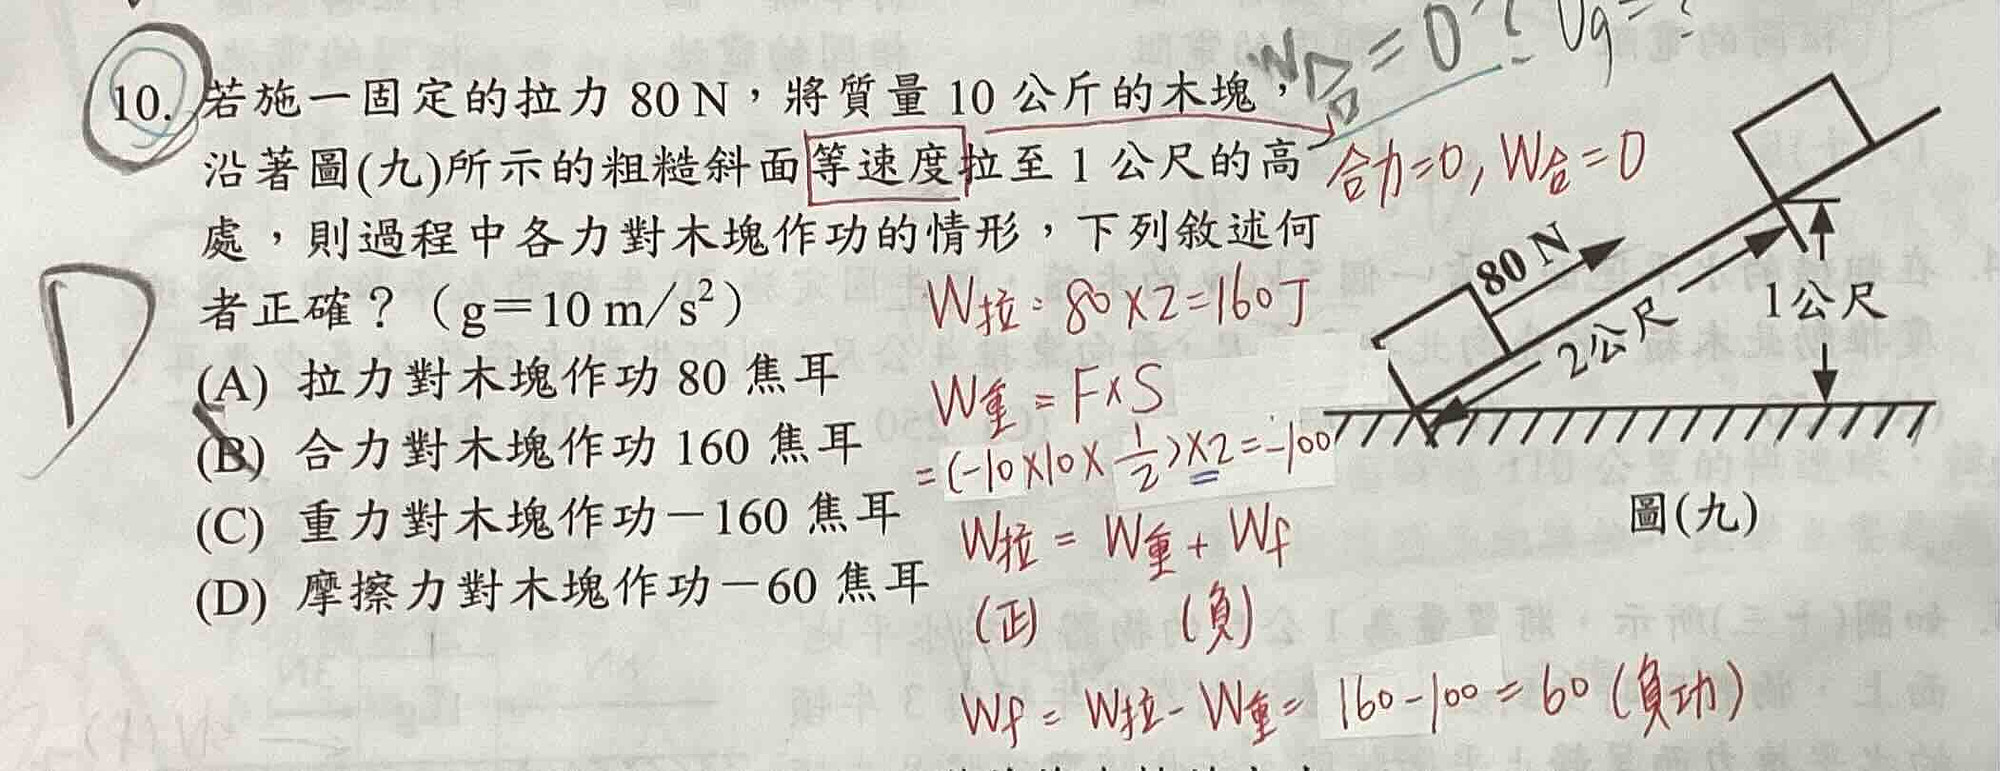 W合=0? Ug=?
10. 若施一固定的拉力 80 N，將質量 10 公斤的木塊，
沿著圖(九)所示的粗糙斜面等速度拉至 1 公尺的高
合力=0, W合=0
處，則過程中各力對木塊作功的情形，下列敘述何
者正確？（g＝10 m/s²）
W拉=80×2=160J
D
(A) 拉力對木塊作功 80 焦耳
W重=F×S
(B) 合力對木塊作功 160 焦耳
=(-10×10×1/2)×2=-100
(C) 重力對木塊作功－160 焦耳
W拉=W重+Wf
(D) 摩擦力對木塊作功－60 焦耳
(正) (負)
Wf=W拉-W重=160-100=60(負功)
80 N
2公尺
1公尺
圖(九)